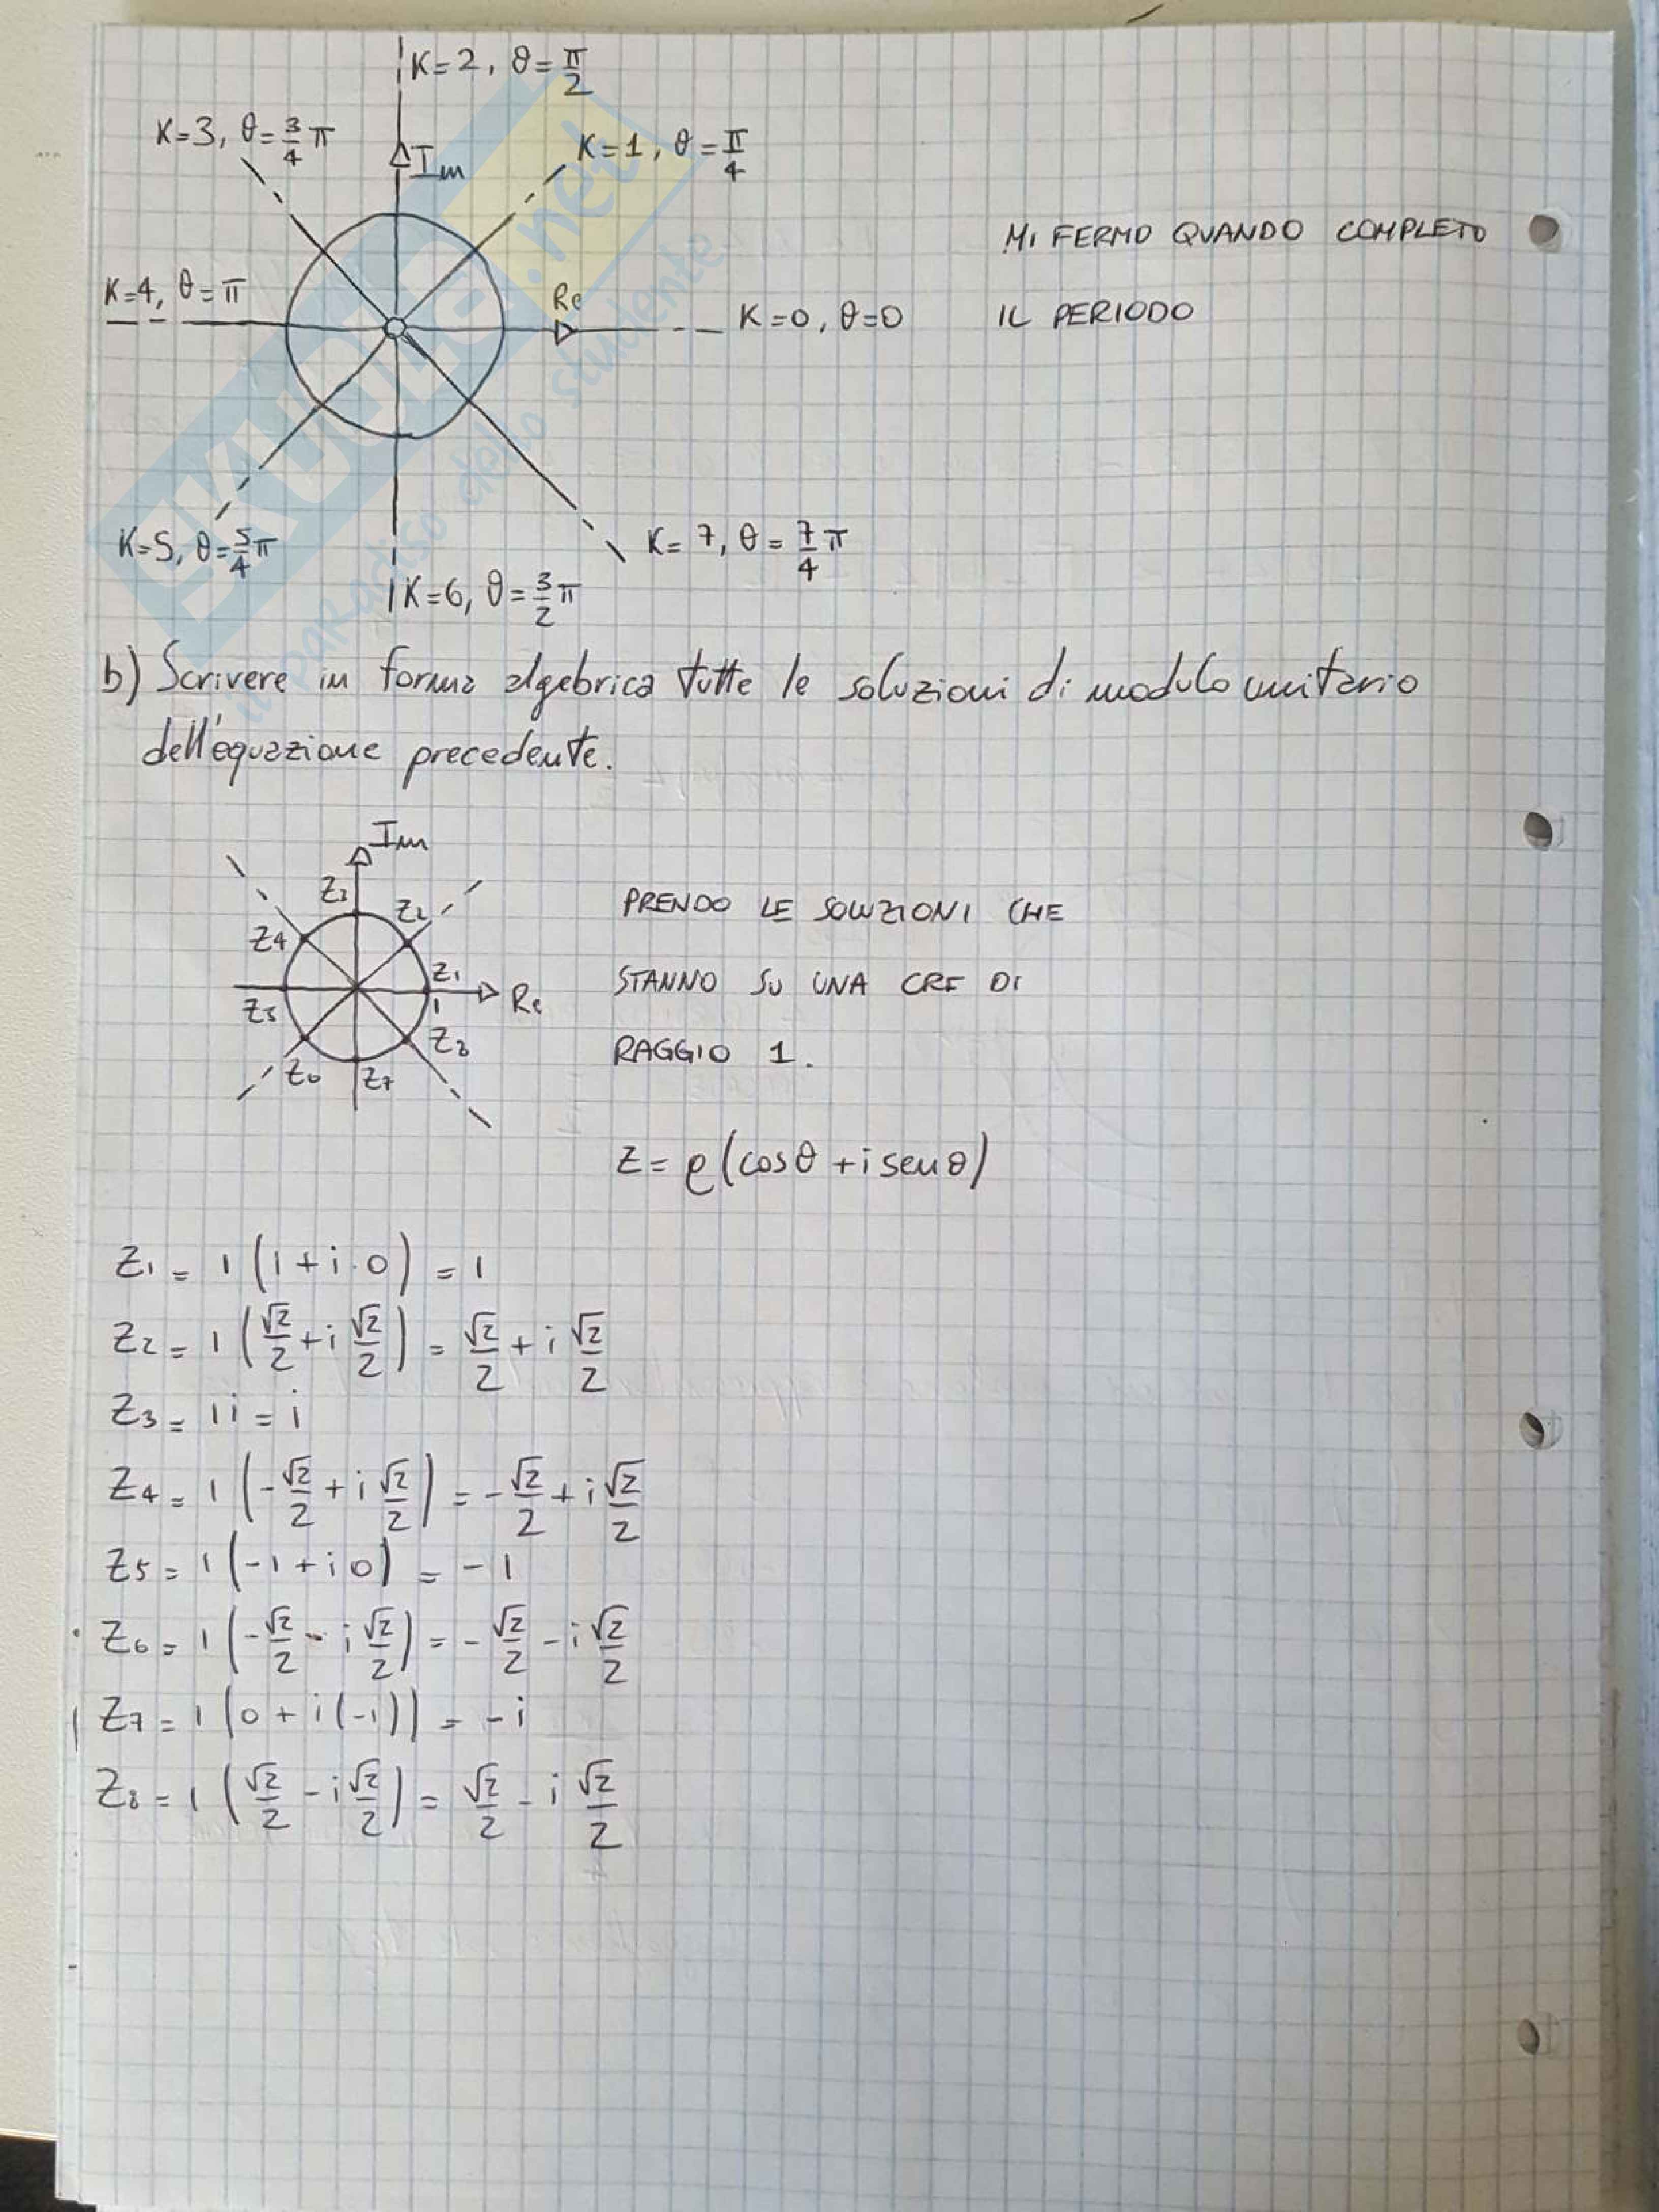 K=2, θ=π/2
K=3, θ=3/4 π
Im
K=1, θ=π/4
MI FERMO QUANDO COMPLETO
K=4, θ=π
Re
K=0, θ=0
IL PERIODO
K=5, θ=5/4 π
K=7, θ=7/4 π
K=6, θ=3/2 π
SKUOLA.net
il paradiso dello studente
b) Scrivere in forma algebrica tutte le soluzioni di modulo unitario
dell'equazione precedente.
Im
Z3
Z2
PRENDO LE SOLUZIONI CHE
Z4
Z1
STANNO SU UNA CRF DI
Z5
1
Re
Z8
RAGGIO 1.
Z6
Z7
Z = ρ(cosθ + i senθ)
Z1 = 1 (1 + i·0) = 1
Z2 = 1 (√2/2 + i √2/2) = √2/2 + i √2/2
Z3 = 1i = i
Z4 = 1 (-√2/2 + i √2/2) = -√2/2 + i √2/2
Z5 = 1 (-1 + i0) = -1
Z6 = 1 (-√2/2 - i √2/2) = -√2/2 - i √2/2
Z7 = 1 (0 + i(-1)) = -i
Z8 = 1 (√2/2 - i √2/2) = √2/2 - i √2/2